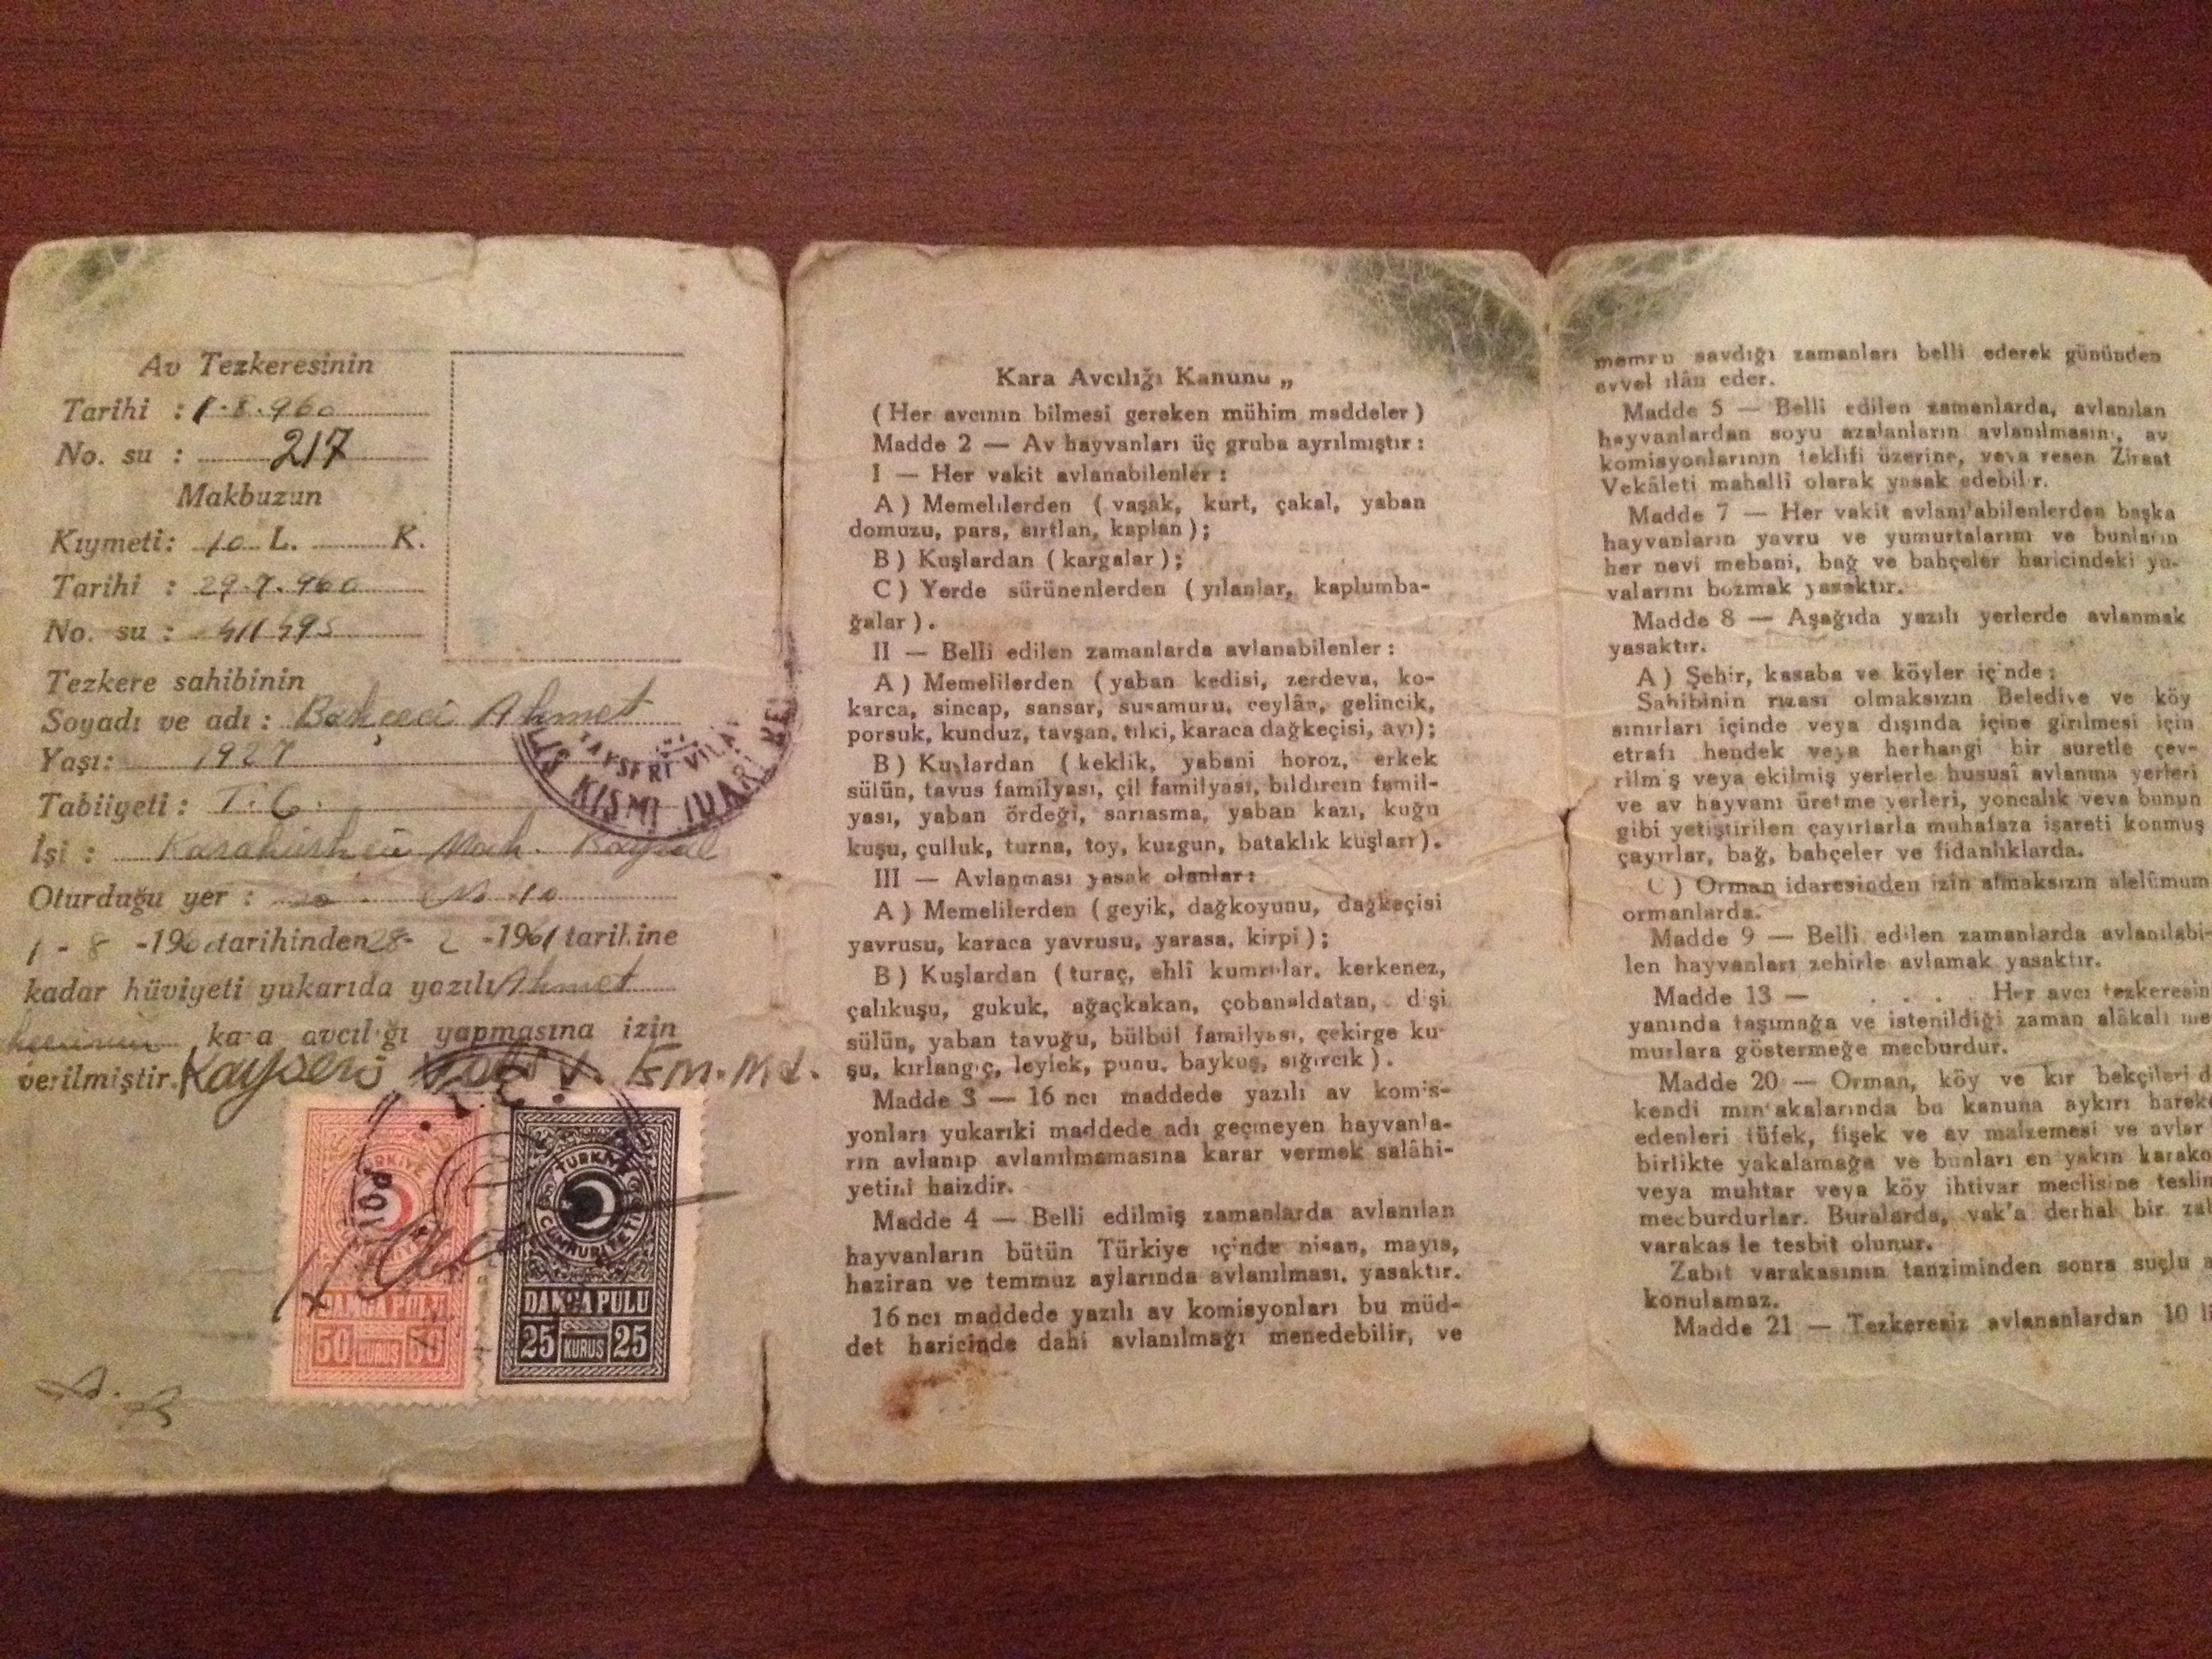 Av Tezkeresinin
Tarihi : 1.8.960
No. su : 217
Makbuzun
Kıymeti: 10 L. K.
Tarihi : 29.7.960
No. su :
Tezkere sahibinin
Soyadı ve adı : Bahçeci Ahmet
Yaşı: 1927
Tabiiyeti : T.C.
İşi : Mah.
Oturduğu yer : No 10
1 - 8 -1960 tarihinden 28- 2 -1961 tarihine
kadar hüviyeti yukarıda yazılı Ahmet
kara avcılığı yapmasına izin
verilmiştir. Kayseri
KAYSERİ VİLA
KISMI İDARİ
TÜRKİYE
DAMGA PULU
50 KURUŞ 50
TÜRKİYE CUMHURİYETİ
DAMGA PULU
25 KURUŞ 25
Kara Avcılığı Kanunu „
( Her avcının bilmesi gereken mühim maddeler )
Madde 2 — Av hayvanları üç gruba ayrılmıştır :
I — Her vakit avlanabilenler :
A ) Memelilerden ( vaşak, kurt, çakal, yaban
domuzu, pars, sırtlan, kaplan ) ;
B ) Kuşlardan ( kargalar ) ;
C ) Yerde sürünenlerden ( yılanlar, kaplumba-
ğalar ) .
II — Belli edilen zamanlarda avlanabilenler :
A ) Memelilerden (yaban kedisi, zerdeva, ko-
karca, sincap, sansar, susamuru, ceylân, gelincik,
porsuk, kunduz, tavşan, tilki, karaca dağkeçisi, ayı);
B ) Kuşlardan (keklik, yabani horoz, erkek
sülün, tavus familyası, çil familyası, bıldırcın famil-
yası, yaban ördeği, sarıasma, yaban kazı, kuğu
kuşu, çulluk, turna, toy, kuzgun, bataklık kuşları).
III — Avlanması yasak olanlar :
A ) Memelilerden (geyik, dağkoyunu, dağkeçisi
yavrusu, karaca yavrusu, yarasa, kirpi ) ;
B ) Kuşlardan (turaç, ehlî kumrular, kerkenez,
çalıkuşu, gukuk, ağaçkakan, çobanaldatan, dişi
sülün, yaban tavuğu, bülbül familyası, çekirge ku-
şu, kırlangıç, leylek, punu, baykuş, sığırcık ) .
Madde 3 — 16 ncı maddede yazılı av komis-
yonları yukarıki maddede adı geçmeyen hayvanla-
rın avlanıp avlanılmamasına karar vermek salâhi-
yetini haizdir.
Madde 4 — Belli edilmiş zamanlarda avlanılan
hayvanların bütün Türkiye içinde nisan, mayıs,
haziran ve temmuz aylarında avlanılması, yasaktır.
16 ncı maddede yazılı av komisyonları bu müd-
det haricinde dahi avlanılmağı menedebilir, ve
memru savdığı zamanları belli ederek gününden
evvel ilân eder.
Madde 5 — Belli edilen zamanlarda, avlanılan
hayvanlardan soyu azalanların avlanılmasını, av
komisyonlarının teklifi üzerine, veya resen Ziraat
Vekâleti mahallî olarak yasak edebilir.
Madde 7 — Her vakit avlanılabilenlerden başka
hayvanların yavru ve yumurtalarını ve bunların
her nevi mebani, bağ ve bahçeler haricindeki yu-
valarını bozmak yasaktır.
Madde 8 — Aşağıda yazılı yerlerde avlanmak
yasaktır.
A ) Şehir, kasaba ve köyler içinde ;
Sahibinin rızası olmaksızın Belediye ve köy
sınırları içinde veya dışında içine girilmesi için
etrafı hendek veya herhangi bir suretle çev-
rilmiş veya ekilmiş yerlerle hususî avlanma yerleri
ve av hayvanı üretme yerleri, yoncalık veya bunun
gibi yetiştirilen çayırlarla muhafaza işareti konmuş
çayırlar, bağ, bahçeler ve fidanlıklarda.
C ) Orman idaresinden izin almaksızın alelûmum
ormanlarda.
Madde 9 — Belli edilen zamanlarda avlanılabi-
len hayvanları zehirle avlamak yasaktır.
Madde 13 — . . . . Her avcı tezkeresin
yanında taşımağa ve istenildiği zaman alâkalı me
murlara göstermeğe mecburdur.
Madde 20 — Orman, köy ve kır bekçileri d
kendi mıntakalarında bu kanuna aykırı hareke
edenleri tüfek, fişek ve av malzemesi ve avlar
birlikte yakalamağa ve bunları en yakın karako
veya muhtar veya köy ihtiyar meclisine teslim
mecburdurlar. Buralarda, vak'a derhal bir zab
varakas le tesbit olunur.
Zabıt varakasının tanziminden sonra suçlu a
konulamaz.
Madde 21 — Tezkeresiz avlananlardan 10 li